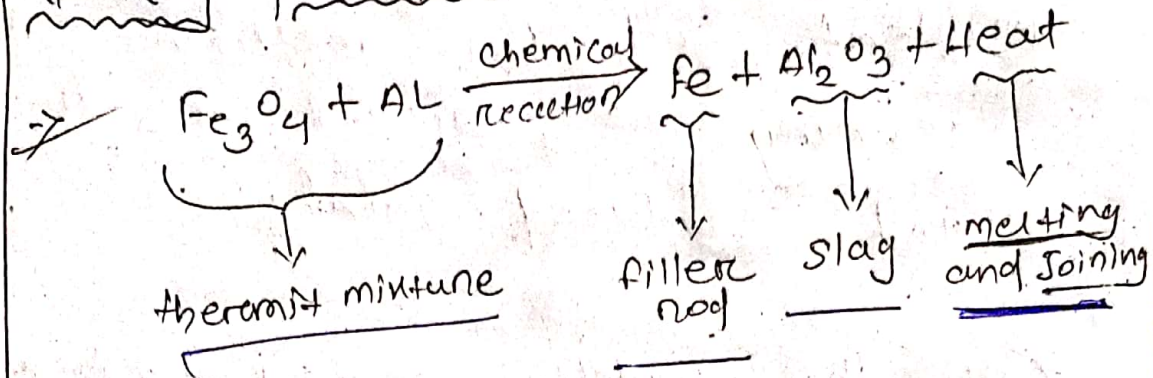 ⇒ Fe₃O₄ + AL chemical reaction → Fe + Al₂O₃ + Heat
thermit mixture
filler rod
slag
melting and Joining